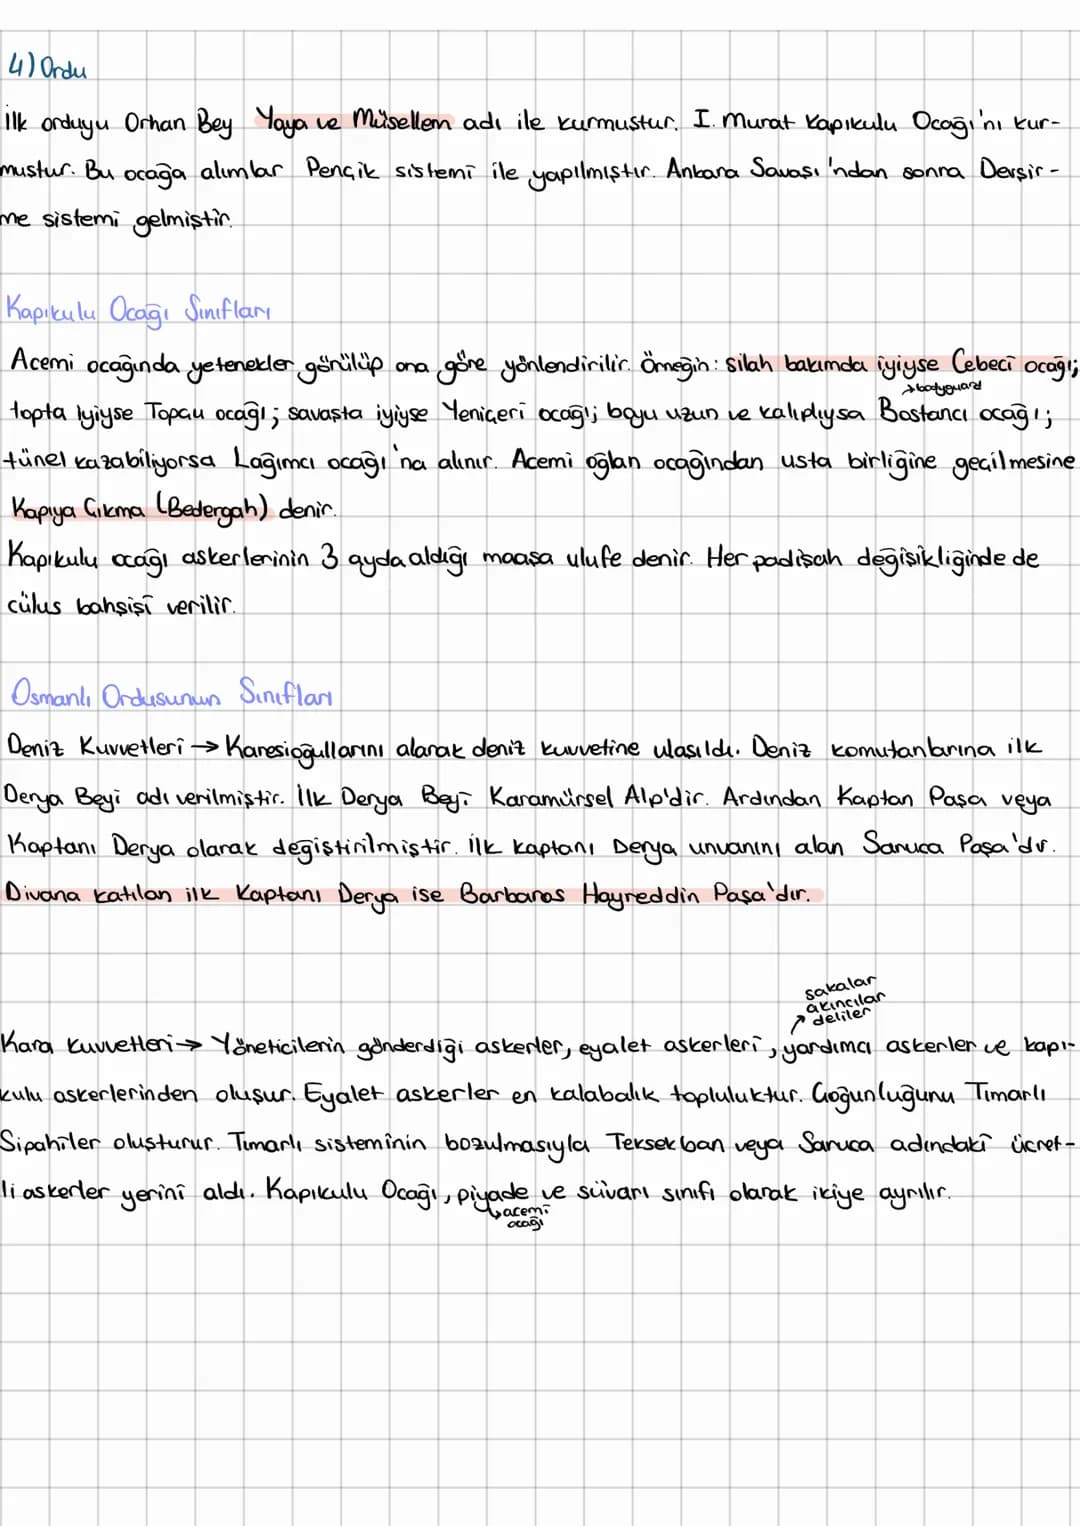 4) Ordu
İlk orduyu Orhan Bey Yaya ve Müsellem adı ile kurmuştur. I. Murat Kapıkulu Ocağı'nı kur-
muştur. Bu ocağa alımlar Pençik sistemi ile yapılmıştır. Ankara Savaşı'ndan sonra Devşir-
me sistemi gelmiştir.
Kapıkulu Ocağı Sınıfları
Acemi ocağında yetenekler görülüp ona göre yönlendirilir. Örneğin: silah bakımda iyiyse Cebeci ocağı;
→bodyguard
topta iyiyse Topçu ocağı; savaşta iyiyse Yeniçeri ocağı; boyu uzun ve kalıplıysa Bostancı ocağı;
tünel kazabiliyorsa Lağımcı ocağı'na alınır. Acemi oğlan ocağından usta birliğine geçilmesine
Kapıya Çıkma (Bedergah) denir.
Kapıkulu ocağı askerlerinin 3 ayda aldığı maaşa ulufe denir. Her padişah değişikliğinde de
cülus bahşişi verilir.
Osmanlı Ordusunun Sınıfları
Deniz Kuvvetleri → Karesioğullarını alarak deniz kuvvetine ulaşıldı. Deniz komutanlarına ilk
Derya Beyi adı verilmiştir. İlk Derya Beyi Karamürsel Alp'dir. Ardından Kaptan Paşa veya
Kaptanı Derya olarak değiştirilmiştir. İlk kaptanı Derya unvanını alan Saruca Paşa'dır.
Divana katılan ilk Kaptanı Derya ise Barbaros Hayreddin Paşa'dır.
sakalar
akıncılar
↗ deliler
Kara Kuvvetleri → Yöneticilerin gönderdiği askerler, eyalet askerleri, yardımcı askerler ve kapı-
kulu askerlerinden oluşur. Eyalet askerler en kalabalık topluluktur. Çoğunluğunu Tımarlı
Sipahiler oluşturur. Tımarlı sisteminin bozulmasıyla Teksekban veya Saruca adındaki ücret-
li askerler yerini aldı. Kapıkulu Ocağı, piyade ve süvari sınıfı olarak ikiye ayrılır.
↳acemi
ocağı